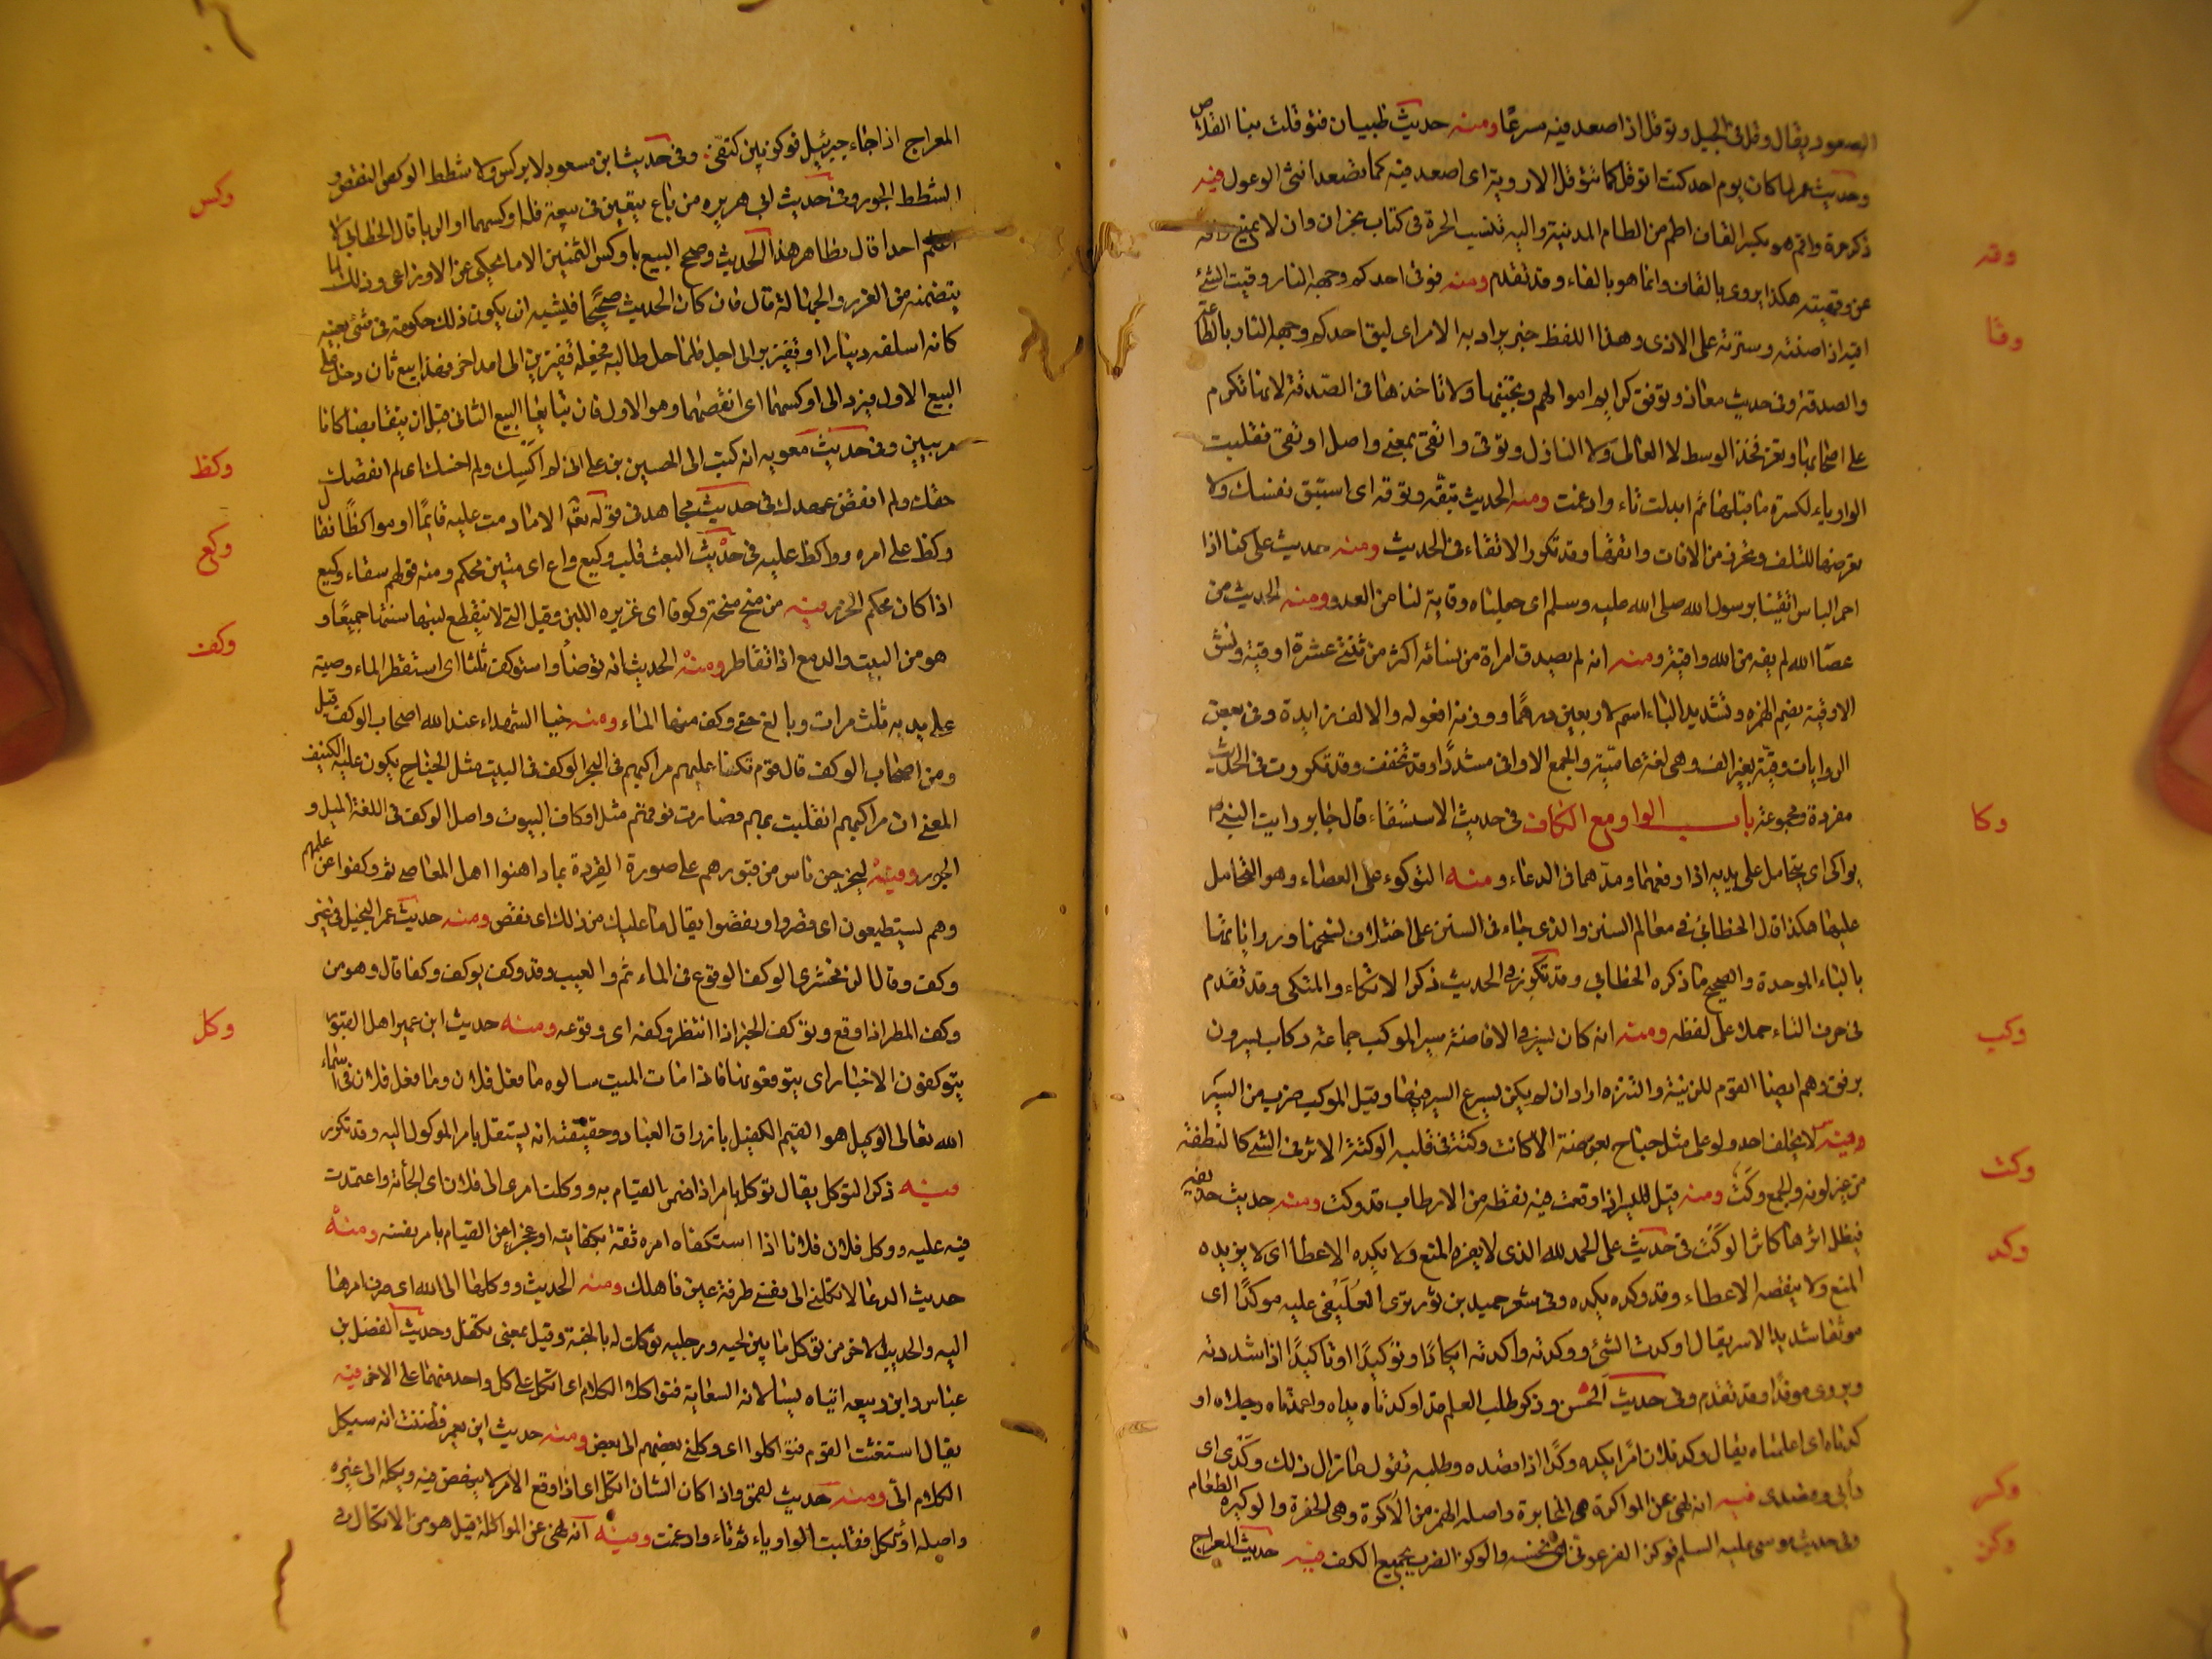 الصعود يقال وقل فى الجبل وتوقل اذا صعد فيه مسرعا ومنه حديث ظبيان فتوقلت بنا القلاص
وحديث عمر لما كان يوم احد كنت اتوقل كما تتوقل الاروية اى اصعد فيه كما تصعد انثى الوعول فيه
وقه
ذكر حرة واقم هو بكسر القاف اطم من اطام المدينة واليه تنسب الحرة فى كتاب نجران وان لا يمنع واقه
عن وقهيته هكذا يروى بالقاف وانما هو بالفاء وقد تقدم ومنه فوقى احدكم وجهه النار وقيت الشئ
وقا
اقيه اذا صنته وسترته على الاذى وهذا اللفظ خبر يراد به الامر اى ليق احدكم وجهه النار بالطاعة
والصدقة وفى حديث معاذ وتوق كرايم اموالهم وتجنبها ولا تاخذها فى الصدقة لانها تكرم
على اصحابها وتعز فخذ الوسط لا العالى ولا النازل وتوقى واتقى بمعنى واصل اوتقى فقلبت
الواو ياء لكسرة ما قبلها ثم ابدلت تاء وادغمت ومنه الحديث تبقه وتوقه اى استبق نفسك ولا
تعرضها للتلف وتحرز من الافات واتقها وقد تكرر الاتقاء فى الحديث ومنه حديث على كنا اذا
احمر الباس اتقينا برسول الله صلى الله عليه وسلم اى جعلناه وقاية لنا من العدو ومنه الحديث من
عصا الله لم يقه من الله واقية ومنه انه لم يصدق امراة من نسائه اكثر من ثنتى عشرة اوقية ونش
الاوقية بضم الهمزه وتشديد الياء اسم لاربعين درهما ووزنه افعوله والالف زايدة وفى بعض
الروايات وقية بغير الف وهى لغة عامية والجمع الاواقى مشددا وقد تخفف وقد تكررت فى الحديث
وكا
مفردة ومجموعة باب الواو مع الكاف فى حديث الاستسقاء قال جابر رايت النبى ص
يواكى اى يتحامل على يديه اذا رفعهما ومدهما فى الدعاء ومنه التوكوء على العصاء وهو التحامل
عليها هكذا قال الخطابى فى معالم السنن والذى جاء فى السنن على اختلاف نسخها ورواياتها
بالباء الموحدة والصحيح ما ذكره الخطابى وقد تكرر فى الحديث ذكر الاتكاء والمتكى وقد تقدم
وكب
فى حرف التاء حملا على لفظه ومنه انه كان يسير فى الافاضة سير الموكب جماعة ركاب يسيرون
برفق وهم ايضا القوم للزينة والتنزه اراد انه لم يكن يسرع السير فيها وقيل الموكب ضرب من السير
وكت
وفيه لا يحلف احد ولو على مثل جناح بعوضة الا كانت وكتة فى قلبه الوكتة الاثر فى الشئ كالنطفة
من غير لونه والجمع وكت ومنه قيل للبسر اذا وقعت فيه نقطه من الارطاب قد وكت ومنه حديث حذيفه
وكد
فيظل اثرها كاثر الوكت فى حديث على الحمد لله الذى لا يفره المنع ولا يكده الاعطا اى لا يزيده
المنع ولا ينقصه الاعطاء وقد وكده يكده وفى شعر حميد بن ثور ترى العليفى عليه موكدا اى
موثقا شديد الاسر يقال اوكدت الشئ ووكدته واكدته ايكادا وتوكيدا او تاكيدا اذا شددته
ويروى موفدا وقد تقدم وفى حديث الحسن وذكر طلب العلم قد اوكدتاه يداه واعمدتاه رجلاه او
كدتاه اى اعلمتاه يقال وكد فلان امرا يكده وكدا اذا قصده وطلبه تقول ما زال ذلك وكدى اى
وكر
دأبى وقصدى فيه انه نهى عن المواكرة هى المخابرة واصله الهمز من الاكرة وهى الحفرة والوكيره الطعام
وكز
وفى حديث موسى عليه السلم فوكز الفرعونى اى نخسه والوكز الضرب بجميع الكف فيه حديث المعراج
المعراج اذا جاء جبرئيل فوكز بين كتفى وفى حديث ابن مسعود لا يركس ولا شطط الوكس النقص و
وكس
الشطط الجور وفى حديث ابى هريره من باع بيعتين فى بيعة فله اوكسهما او الربا قال الخطابى لا
اعلم احدا قال بظاهر هذا الحديث وصحح البيع باوكس الثمنين الا ما يحكى عن الاوزاعى وذلك لما
يتضمنه من الغرر والجهالة قال فان كان الحديث صحيحا فيشبه ان يكون ذلك حكومة فى شئ بعينه
كانه اسلفه دينارا او قفيز بر الى اجل فلما حل طالبه فجعله قفيزين الى امد اخر فهذا بيع ثان دخل على
البيع الاول فيرد الى اوكسهما اى انقصهما وهو الاول فان تبايعا البيع الثانى قبل ان يتقابضا كانا
مربيين وفى حديث معويه انه كتب الى الحسين بن على انى لم اكسك ولم اخسك اى لم انقصك
وكظ
حقك ولم انقض عهدك فى حديث مجاهد فى قوله تعالى الا ما دمت عليه قايما او مواكظا نقا
وكظ على امره وواكظ عليه فى حديث البعث قلب وكيع واع اى متين محكم ومنه قولهم سقاء وكيع
وكع
اذا كان محكم الخرز فيه من منح منحة وكوفا اى غزيره اللبن وقيل التى لا ينقطع لبنها سنتها جميعا و
وكف
هو من البيت والدمع اذا تقاطر ومنه الحديث انه توضا واستوكف ثلثا اى استقطر الماء وصبه
على يديه ثلث مرات وبالغ حتى وكف منها الماء ومنه خيار الشهداء عند الله اصحاب الوكف قيل
ومن اصحاب الوكف قال قوم تكفا عليهم مراكبهم فى البحر الوكف فى البيت مثل الجناح يكون عليه الكنيف
المعنى ان مراكبهم انقلبت بهم فصارت فوقهم مثل اوكاف البيوت واصل الوكف فى اللغة الميل و
الجور وفيه ليخرجن ناس من قبورهم على صورة القردة بما داهنوا اهل المعاصى ثم وكفوا عن علمهم
وهم يستطيعون اى قصروا ونقصوا يقال ما عليك من ذلك اى نقص ومنه حديث عمر البخيل فى غير
وكف وقال الزمخشرى الوكف الوقوع فى الماء ثم والعيب وقد وكف يوكف وكفا قال وهو من
وكف المطر اذا وقع وتوكف الخبر اذا انتظر وكفه اى وقوعه ومنه حديث ابن عمير اهل القبور
وكل
يتوكفون الاخبار اى يتوقعونها فاذا مات الميت سالوه ما فعل فلان وما فعل فلان فى اسماء
الله تعالى الوكيل هو القيم الكفيل بارزاق العباد وحقيقته انه يستقل بامر الموكول اليه وقد تكرر
فيه ذكر التوكل يقال توكل بامر اذا ضمن القيام به ووكلت امرى الى فلان اى الجأته واعتمدت
فيه عليه ووكل فلان فلانا اذا استكفاه امره ثقة بكفايته او عجزا عن القيام بامر نفسه ومنه
حديث الدعا لا تكلنى الى نفسى طرفة عين فاهلك ومنه الحديث ووكلها الى الله اى صرف امرها
اليه والحديث الاخر من توكل ما بين لحيه ورجليه توكلت له بالجنة وقيل بمعنى تكفل وحديث الفضل بن
عباس وابن ربيعه اتياه يسالانه السقاية فتواكلا الكلام اى اتكل كل واحد منهما على الاخر فيه
يقال استغثت القوم فتواكلوا اى وكلنى بعضهم الى بعض ومنه حديث ابن يعمر فظننت انه سيكل
الكلام الى ومنه حديث لقمن واذا كان الشان اتكل اى اذا وقع الامر لا ينهض فيه ويكله الى غيره
واصله اوتكل فقلبت الواو ياء ثم تاء وادغمت وفيه انه نهى عن المواكلة قيل هو من الاتكال فى